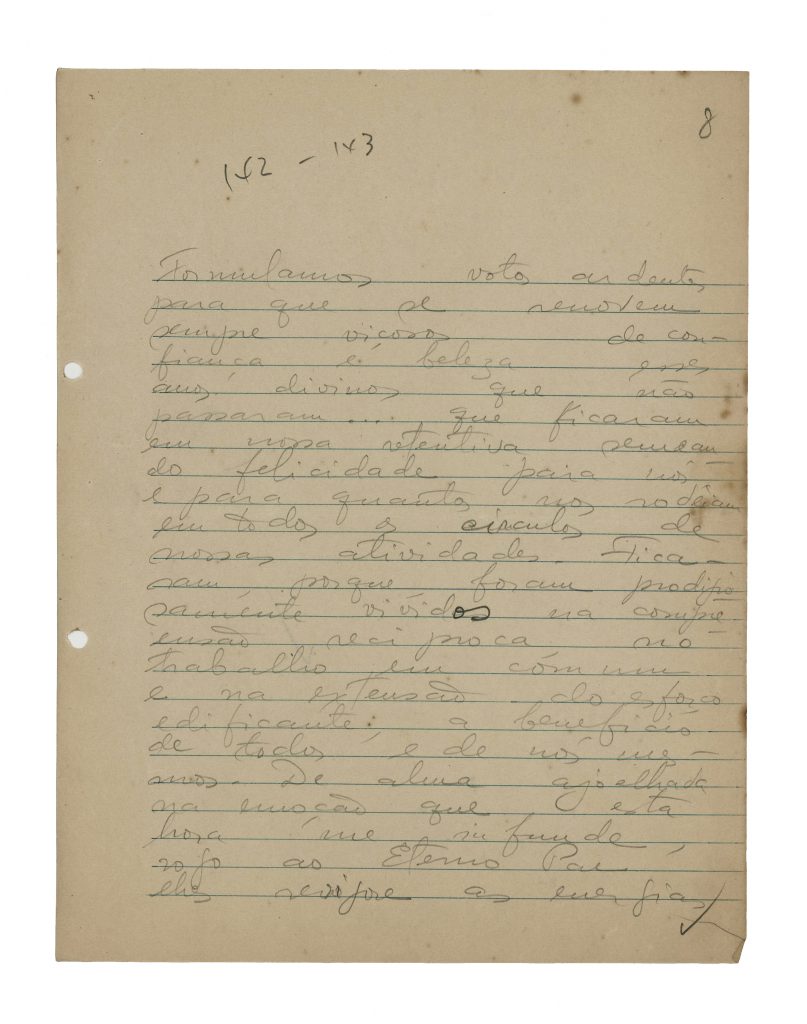 8
142 - 143
Formulamos votos ardentes
para que se renovem
sempre viçosos de con-
fiança e beleza esses
anos divinos que não
passaram... que ficaram
em nossa retentiva semean
do felicidade para nós
e para quantos nos rodeiam
em todos os círculos de
nossas atividades. Fica-
ram porque foram prodigio
samente vividos na compre
ensão reciproca no
trabalho em comum
e na extensão do esforço
edificante, a benefício
de todos e de nós me-
mos. De alma ajoelhada
na emoção que esta
hora me infunde,
rogo ao Eterno Pai
lhes revigore as energias